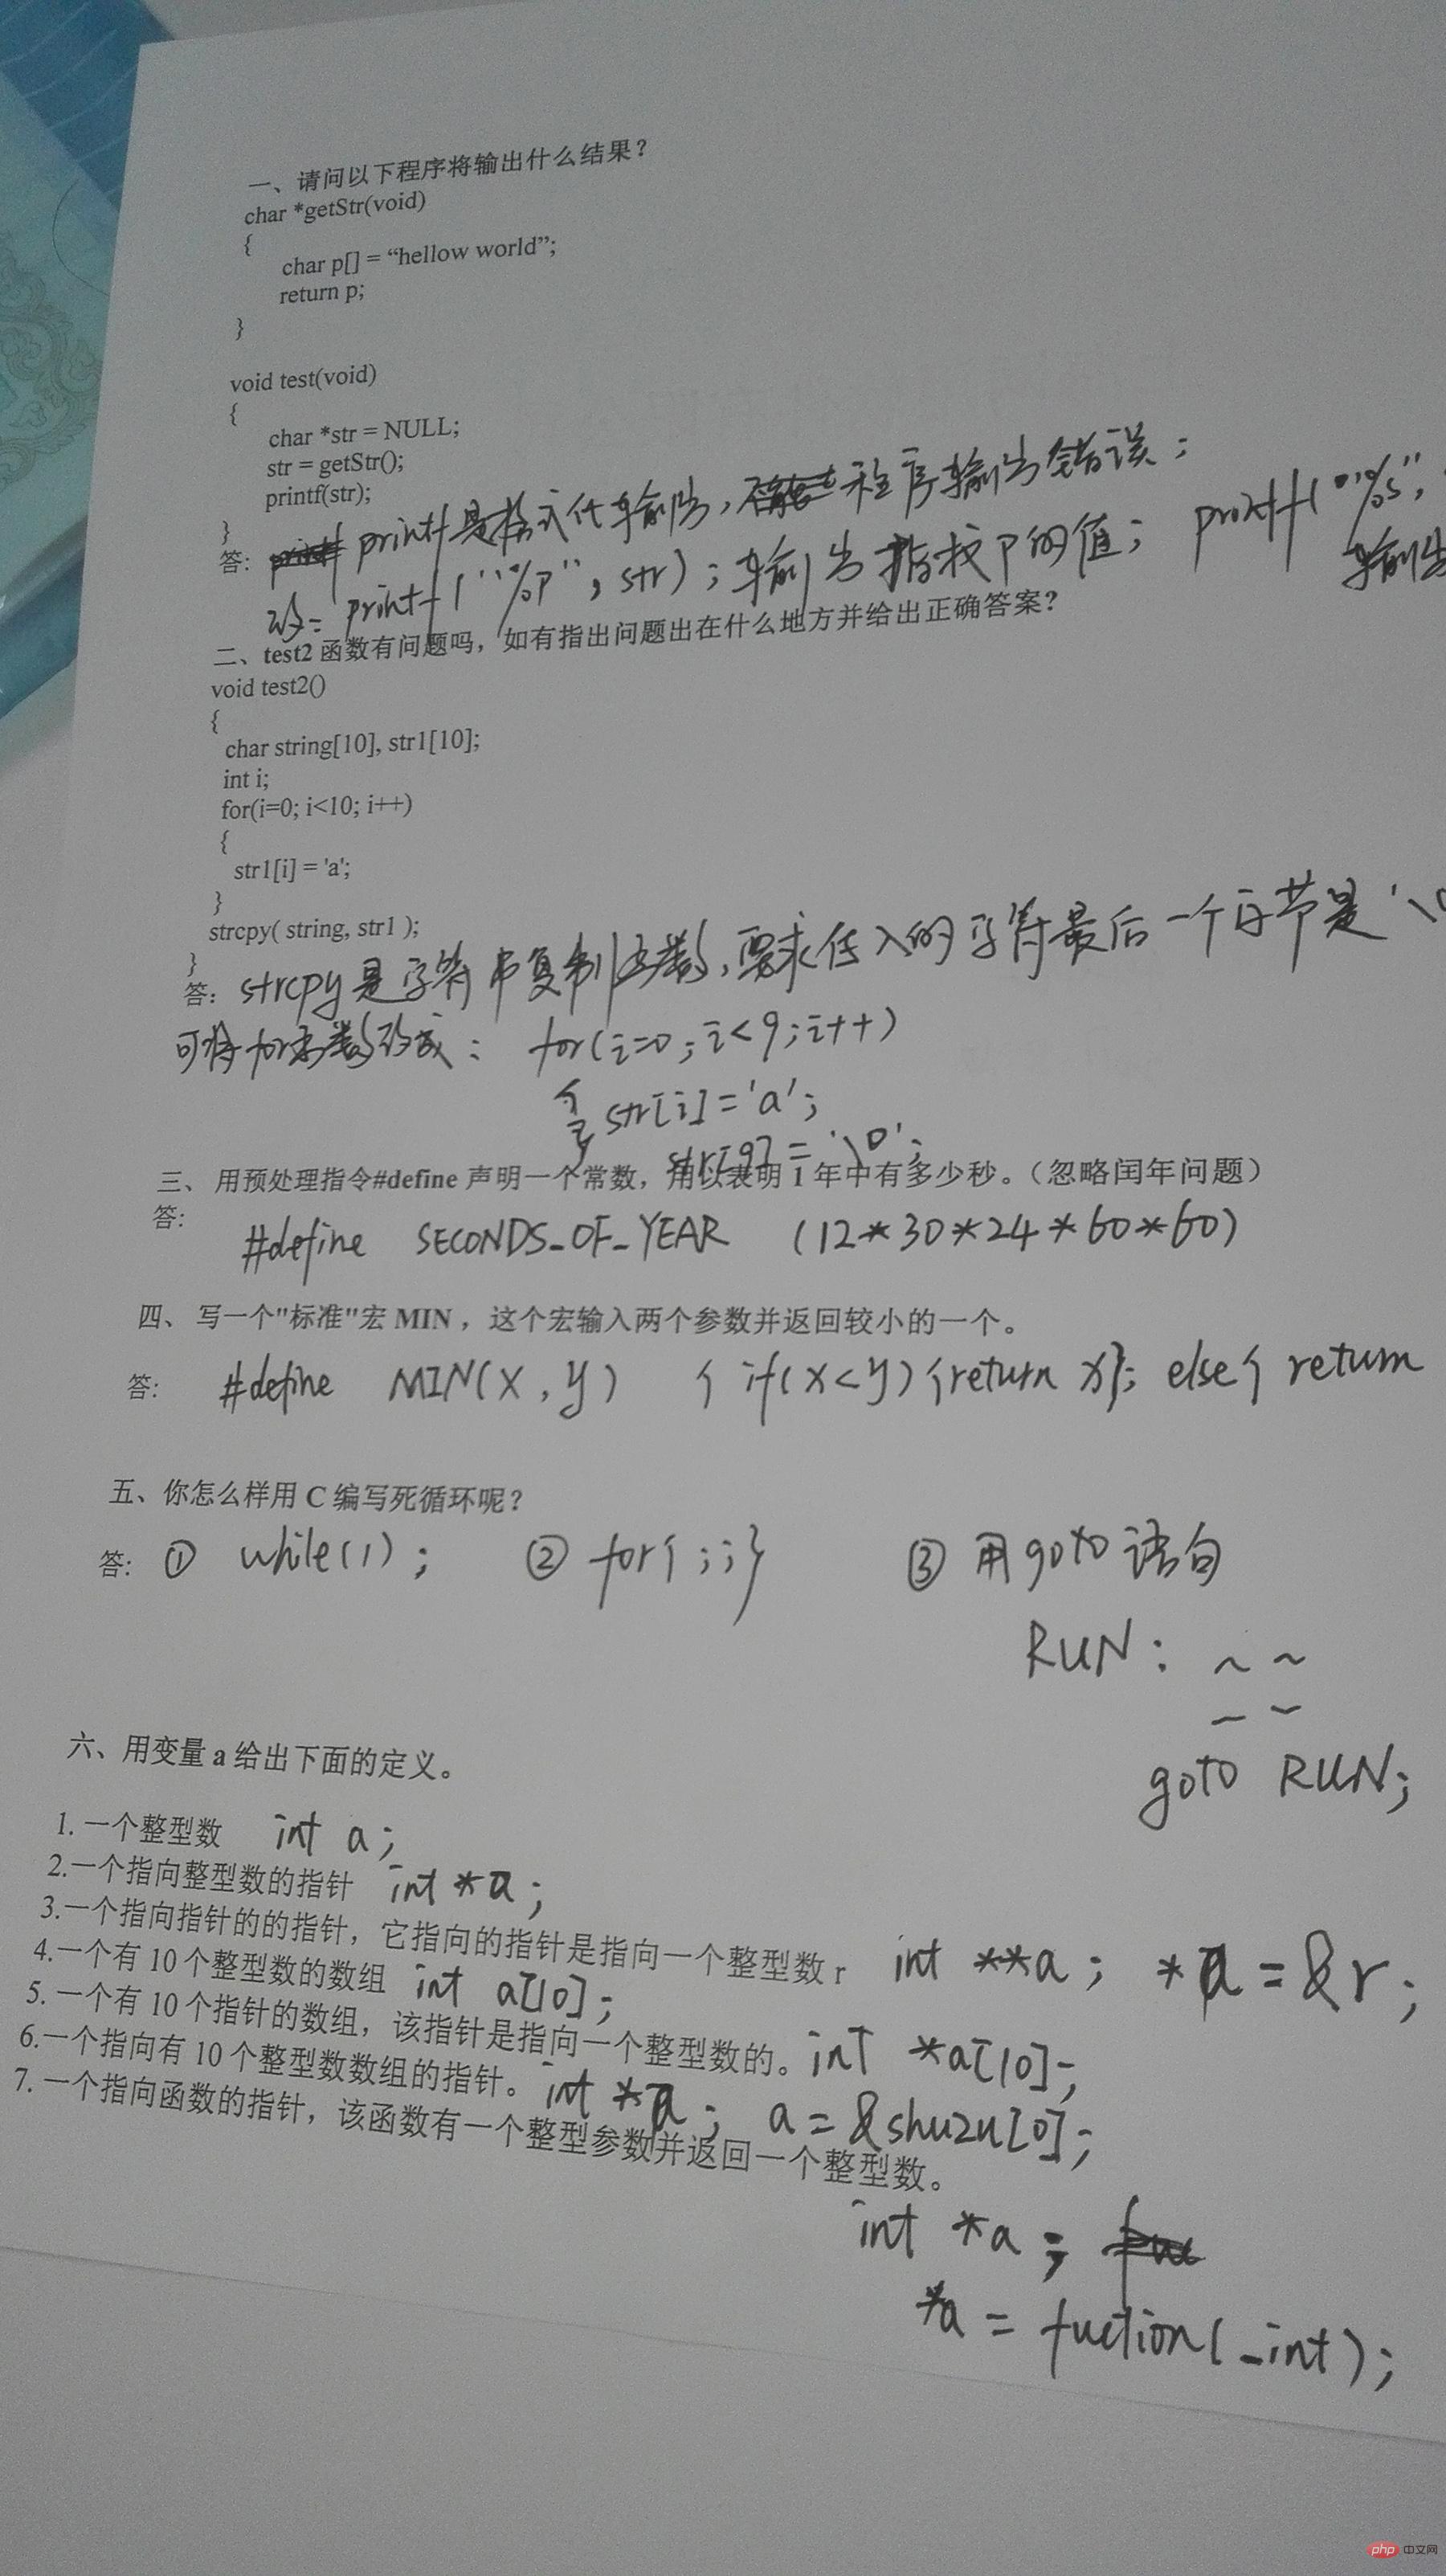 一、请问以下程序将输出什么结果？
char *getStr(void)
{
char p[] = “hellow world”;
return p;
}
void test(void)
{
char *str = NULL;
str = getStr();
printf(str);
}
答: printf是格式化输出, 程序输出错误;
printf("%s",
改: printf("%p", str); 输出指针P的值;
输出
二、test2 函数有问题吗，如有指出问题出在什么地方并给出正确答案？
void test2()
{
char string[10], str1[10];
int i;
for(i=0; i<10; i++)
{
str1[i] = 'a';
}
strcpy( string, str1 );
}
答: strcpy是字符串复制函数, 要求传入的字符最后一个字节是'\0
可将for函数改成: for(i=0; i<9; i++)
{ str[i]='a';
str[9]='\0';
三、 用预处理指令#define 声明一个常数，用以表明 1 年中有多少秒。（忽略闰年问题）
答:
#define SECONDS_OF_YEAR (12*30*24*60*60)
四、 写一个"标准"宏 MIN ，这个宏输入两个参数并返回较小的一个。
答: #define MIN(x,y) { if(x<y){return x}; else{ return
五、你怎么样用 C 编写死循环呢？
答: ① while(1); ② for{;;} ③ 用goto语句
RUN: ~ ~
goto RUN;
六、用变量 a 给出下面的定义。
1. 一个整型数 int a;
2.一个指向整型数的指针 int *a;
3.一个指向指针的的指针，它指向的指针是指向一个整型数 r int **a; *a=&r;
4.一个有 10 个整型数的数组 int a[10];
5. 一个有 10 个指针的数组，该指针是指向一个整型数的。 int *a[10];
6.一个指向有 10 个整型数数组的指针。 int *a; a=&shuzu[0];
7. 一个指向函数的指针，该函数有一个整型参数并返回一个整型数。
int *a;
*a = fuction(_int);
php 中文网